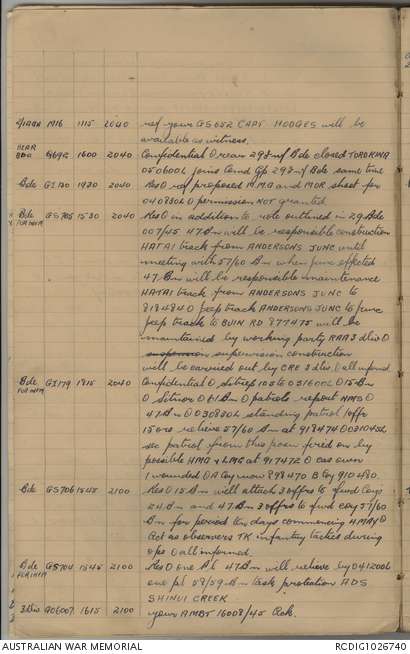 2/1AAR 1916 1115 2040 ref your GS052 CAPT HODGES will be
available as witness.
REAR
BDE G692 1600 2040 Confidential O rear 29 Inf Bde closed TOROKINA
050600L joins Comd Gp 29 Inf Bde same time
Bde GI 1470 2040 Res O ref proposed MMG and MOR shoot for
040830L O permission NOT granted
Bde
FOR INFM GS705 1530 2040 Res O in addition to role outlined in 29 Bde
007/45 47 Bn will be responsible construction
HATAI track from ANDERSONS JUNC until
meeting with 57/60 Bn when junc effected
47 Bn will be responsible maintenance
HATAI track from ANDERSONS JUNC to
818484 O jeep track ANDERSONS JUNC to junc
jeep track to BUIN RD 877475 will be
maintained by working party RAA 3 div O
supervision construction
will be carried out by CRE 3 div O all informed
Bde
FOR INFM GI179 1815 2040 Confidential O sitrep 105 to 031600L O 15 Bn
O sitnor O 61 Bn O patrols report NMS O
47 Bn O 030830L standing patrol 1 offr
15 ors relieve 57/60 Bn at 918474 O 031045L
sec patrol from this posn fired on by
possible HMG & LMG at 917472 O cas own
1 wounded O A Coy now 898470 B Coy 910480.
Bde GS706 1545 2100 Res O 15 Bn will attach 3 offrs to fwd Coys
24 Bn and 47 Bn 3 offrs to fwd coy 57/60
Bn for period ten days commencing 4 MAY O
Act as observers TK infantry tactics during
ops O all informed.
Bde
FOR INFM GS701 1545 2100 Res O one Pl 47 Bn will relieve by 041200L
one pl 58/59 Bn task protection ADS
SHINUI CREEK
3 Div A06007 1615 2100 your AMB7 16008/45 Rok.
AUSTRALIAN WAR MEMORIAL
RCDIG1026740